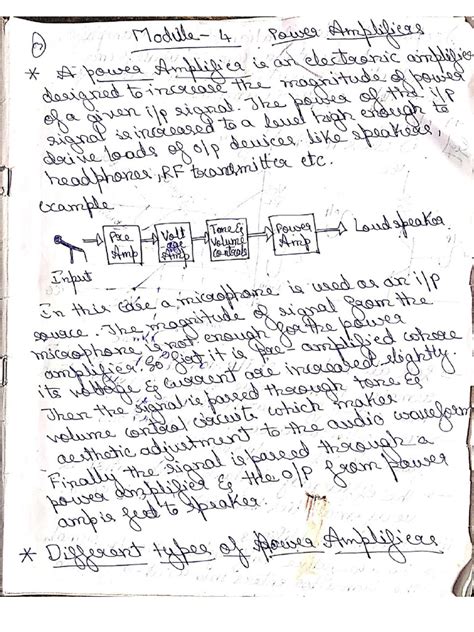 Module - 4 Power Amplifiers
* A power Amplifier is an electronic amplifier
designed to increase the magnitude of power
of a given i/p signal. The power of the i/p
signal is increased to a level high enough to
drive loads of o/p devices like speakers,
headphones, RF transmitter etc.
Example
Pre Amp
Volt Amp
Tone & Volume controls
Power Amp
Loudspeaker
Input
In this case a microphone is used as an i/p
source. The magnitude of signal from the
microphone is not enough for the power
amplifier. So first it is pre-amplified where
its voltage & current are increased slightly.
Then the signal is passed through tone &
volume control circuits which makes
aesthetic adjustment to the audio waveform
Finally the signal is passed through a
power amplifier & the o/p from power
amp is fed to speaker.
* Different types of Power Amplifiers